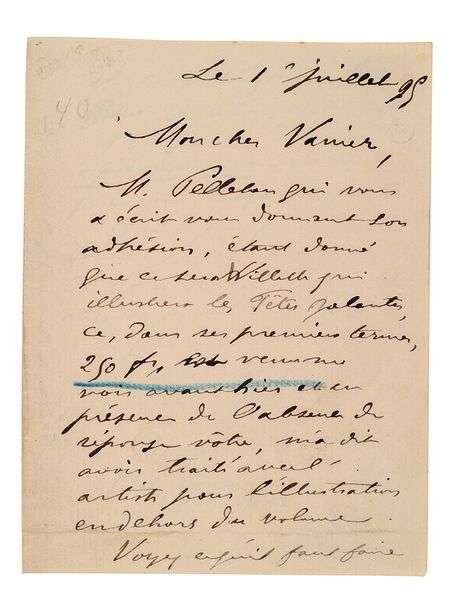 Le 1er juillet 95
40
Mon cher Vanier,
M. Pelletan qui vous
a écrit vous donnant son
adhésion, étant donné
que ce sera Willette qui
illustrera les Fêtes galantes,
ce, dans ses premiers termes,
250 fr, est venu me
voir avant hier et en
présence de l'absence de
réponse vôtre, m'a dit
avoir traité avec l'
artiste pour l'illustration
en dehors du volume.
Voyez ce qu'il faut faire